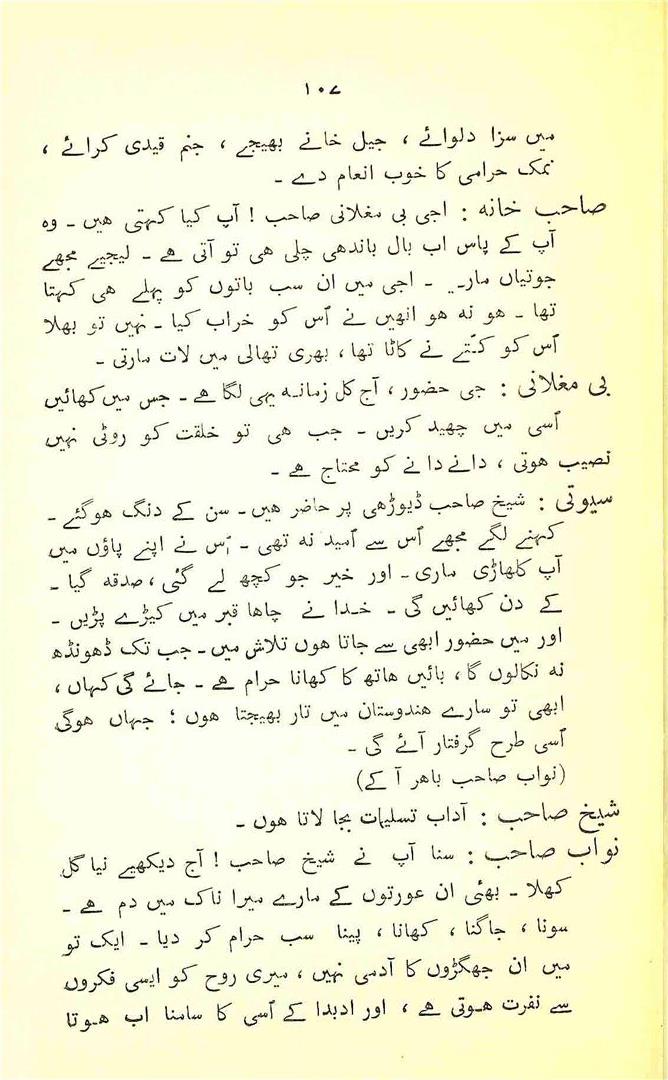 ۱۰۷
میں سزا دلوائے ، جیل خانے بھیجے ، جنم قیدی کرائے ،
نمک حرامی کا خوب انعام دے ۔
صاحب خانہ : اجی بی مغلانی صاحب ! آپ کیا کہتی ہیں ۔ وہ
آپ کے پاس اب بال باندھی چلی ہی تو آتی ہے ۔ لیجیے مجھے
جوتیاں مارے ۔ اجی میں ان سب باتوں کو پہلے ہی کہتا
تھا ۔ ہو نہ ہو انھیں نے اُس کو خراب کیا ۔ نہیں تو بھلا
اُس کو کتّے نے کاٹا تھا ، بھری تھالی میں لات مارتی ۔
بی مغلانی : جی حضور ، آج کل زمانہ یہی لگا ہے ۔ جس میں کھائیں
اُسی میں چھید کریں ۔ جب ہی تو خلقت کو روٹی نہیں
نصیب ہوتی ، دانے دانے کو محتاج ہے ۔
سیوتی : شیخ صاحب ڈیوڑھی پر حاضر ہیں ۔ سن کے دنگ ہوگئے ۔
کہنے لگے مجھے اُس سے اُمید نہ تھی ۔ اُس نے اپنے پاؤں میں
آپ کلھاڑی ماری ۔ اور خیر جو کچھ لے گئی ، صدقہ گیا ۔
کے دن کھائیں گی ۔ خدا نے چاہا قبر میں کیڑے پڑیں ۔
اور میں حضور ابھی سے جاتا ہوں تلاش میں ۔ جب تک ڈھونڈھ
نہ نکالوں گا ، بائیں ہاتھ کا کھانا حرام ہے ۔ جائے گی کہاں ،
ابھی تو سارے ہندوستان میں تار بھیجتا ہوں ؛ جہاں ہوگی
اُسی طرح گرفتار آئے گی ۔
(نواب صاحب باہر آ کے)
شیخ صاحب : آداب تسلیمات بجا لاتا ہوں ۔
نواب صاحب : سنا آپ نے شیخ صاحب ! آج دیکھیے نیا گل
کھلا ۔ بھئی ان عورتوں کے مارے میرا ناک میں دم ہے ۔
سونا ، جاگنا ، کھانا ، پینا سب حرام کر دیا ۔ ایک تو
میں ان جھگڑوں کا آدمی نہیں ، میری روح کو ایسی فکروں
سے نفرت ہوتی ہے ، اور ادبدا کے اُسی کا سامنا اب ہوتا